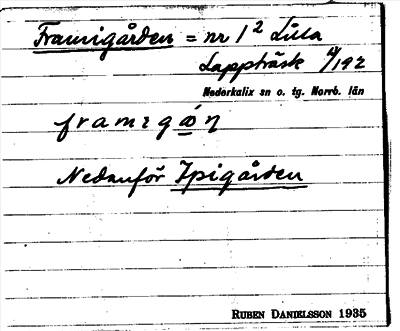 Framigården = nr 1² Lilla
Lappträsk 4/192
Nederkalix sn o. tg. Norrb. län
Nedanför Ipigården
RUBEN DANIELSSON 1935